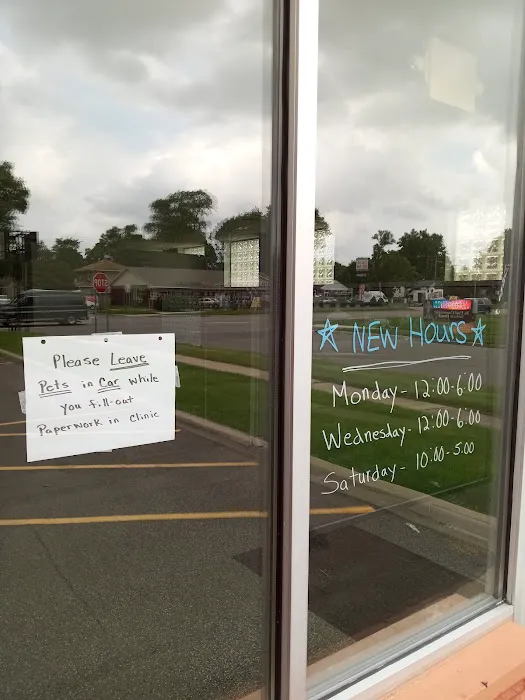 Please Leave
Pets in Car while
you fill out
Paperwork in Clinic
STOP
☆ NEW HOURS ☆
Monday - 12:00-6:00
Wednesday - 12:00-6:00
Saturday - 10:00-5:00